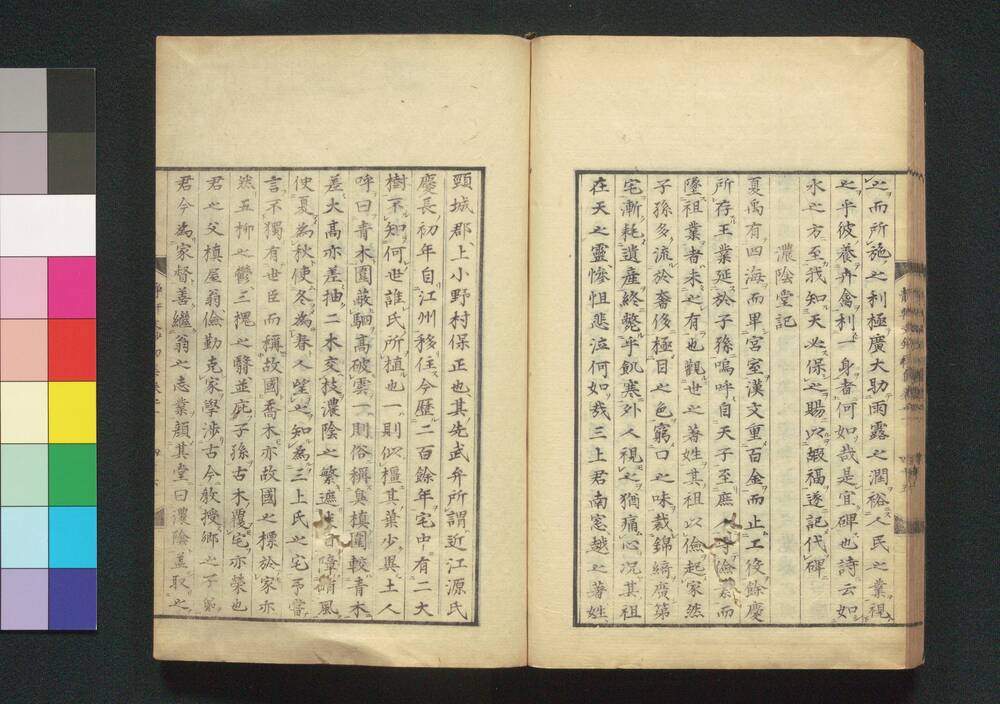 之而所施之利極廣大助雨露之潤裕人民之業視
之乎彼養卉禽利一身者何如哉是宜碑也詩云如
水之方至我知天必保之賜以嘏福遂記代碑
濃陰堂記
夏禹有四海而卑宮室漢文重百金而止工役餘慶
所存王業延於子孫嗚呼自天子至庶人守儉素而
墜祖業者未之有也觀世之著姓其祖以儉起家然
子孫多流於奢侈極目之色窮口之味裁錦綺廣第
宅漸耗遺産終斃乎飢寒外人視之猶痛心况其祖
在天之靈慘怛悲泣何如哉三上君南窓越之著姓
頸城郡上小野村保正也其先武弁所謂近江源氏
慶長初年自江州移住今歷二百餘年宅中有二大
樹不知何世誰氏所植也一則似橿其葉少異土人
呼曰青木圍蔽駟高破雲一則俗稱臭槙圍較青木
差大高亦差抽二木交枝濃陰之繁遮日障風
使夏為秋使冬為春人望之知為三上氏之宅予嘗
言不獨有世臣而稱故國喬木亦故國之標於家亦
然五柳之鬱三槐之翳並庇子孫古木覆宅亦榮也
君之父槙屋翁儉勤克家學渉古今教授鄉之子弟
君今為家督善繼翁之志業顏其堂曰濃陰蓋取之